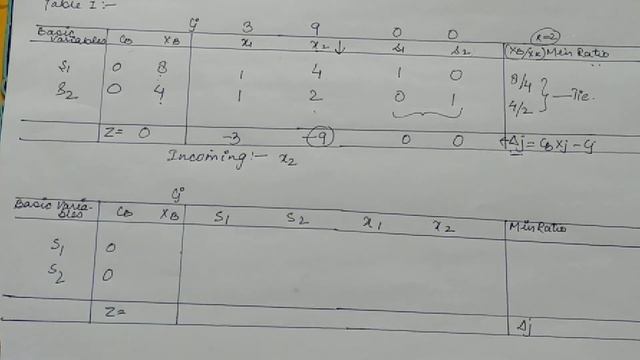 Table 1:-
Cj 3 9 0 0 K=2
Basic Variables CB XB x1 x2 ↓ s1 s2 (XB/xk) Min Ratio
S1 0 8 1 4 1 0 8/4
S2 0 4 1 2 0 1 4/2
} — Tie.
Z= 0 -3 -9 0 0 Δj = CB Xj - Cj
Incoming:- x2
Cj
Basic Varia-bles CB XB S1 S2 x1 x2 Min Ratio
S1 0
S2 0
Z= Δj